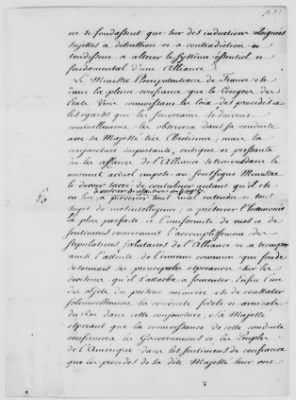 ne se fondassent que sur des inductions
sujettes à discussion et à contradiction et
tendissent à altérer le systême essentiel et
fondamental d'une Alliance.
Le Ministre Plénipotentiaire de France est
dans la pleine confiance que le Congrès des
Etats Unis connoissant les loix des procédés et
les egards que les souverains se doivent
mutuellement, les observera dans sa conduite
avec sa Majesté très Chrétienne; mais la
conjoncture importante, critique et pressante
où les affaires de l'Alliance se trouvent dans le
moment actuel impose au soussigné Ministre
le devoir sacré de contribuer autant qu'il est
en lui, à prévenir tout mal entendu et tout
sujet de mesintelligence, à préserver l'harmonie
la plus parfaite et l'uniformité de vues et de
sentimens concernant l'accomplissement des
stipulations salutaires de l'Alliance et à tromper
ainsi l'attente de l'ennemi commun que fonde
désormais ses principales espérances sur les
divisions qu'il s'attache à fomenter. Enfin l'un
des objets du present mémoire est de constater
solemnellement la conduite fidele et amicale
du Roi dans cette conjoncture. Sa Majesté
espérant que la connoissance de cette conduite
confirmera les Gouvernemens et les Peuples
de l'Amérique dans les sentimens de confiance
que les procédés de sa dite Majesté leur ont